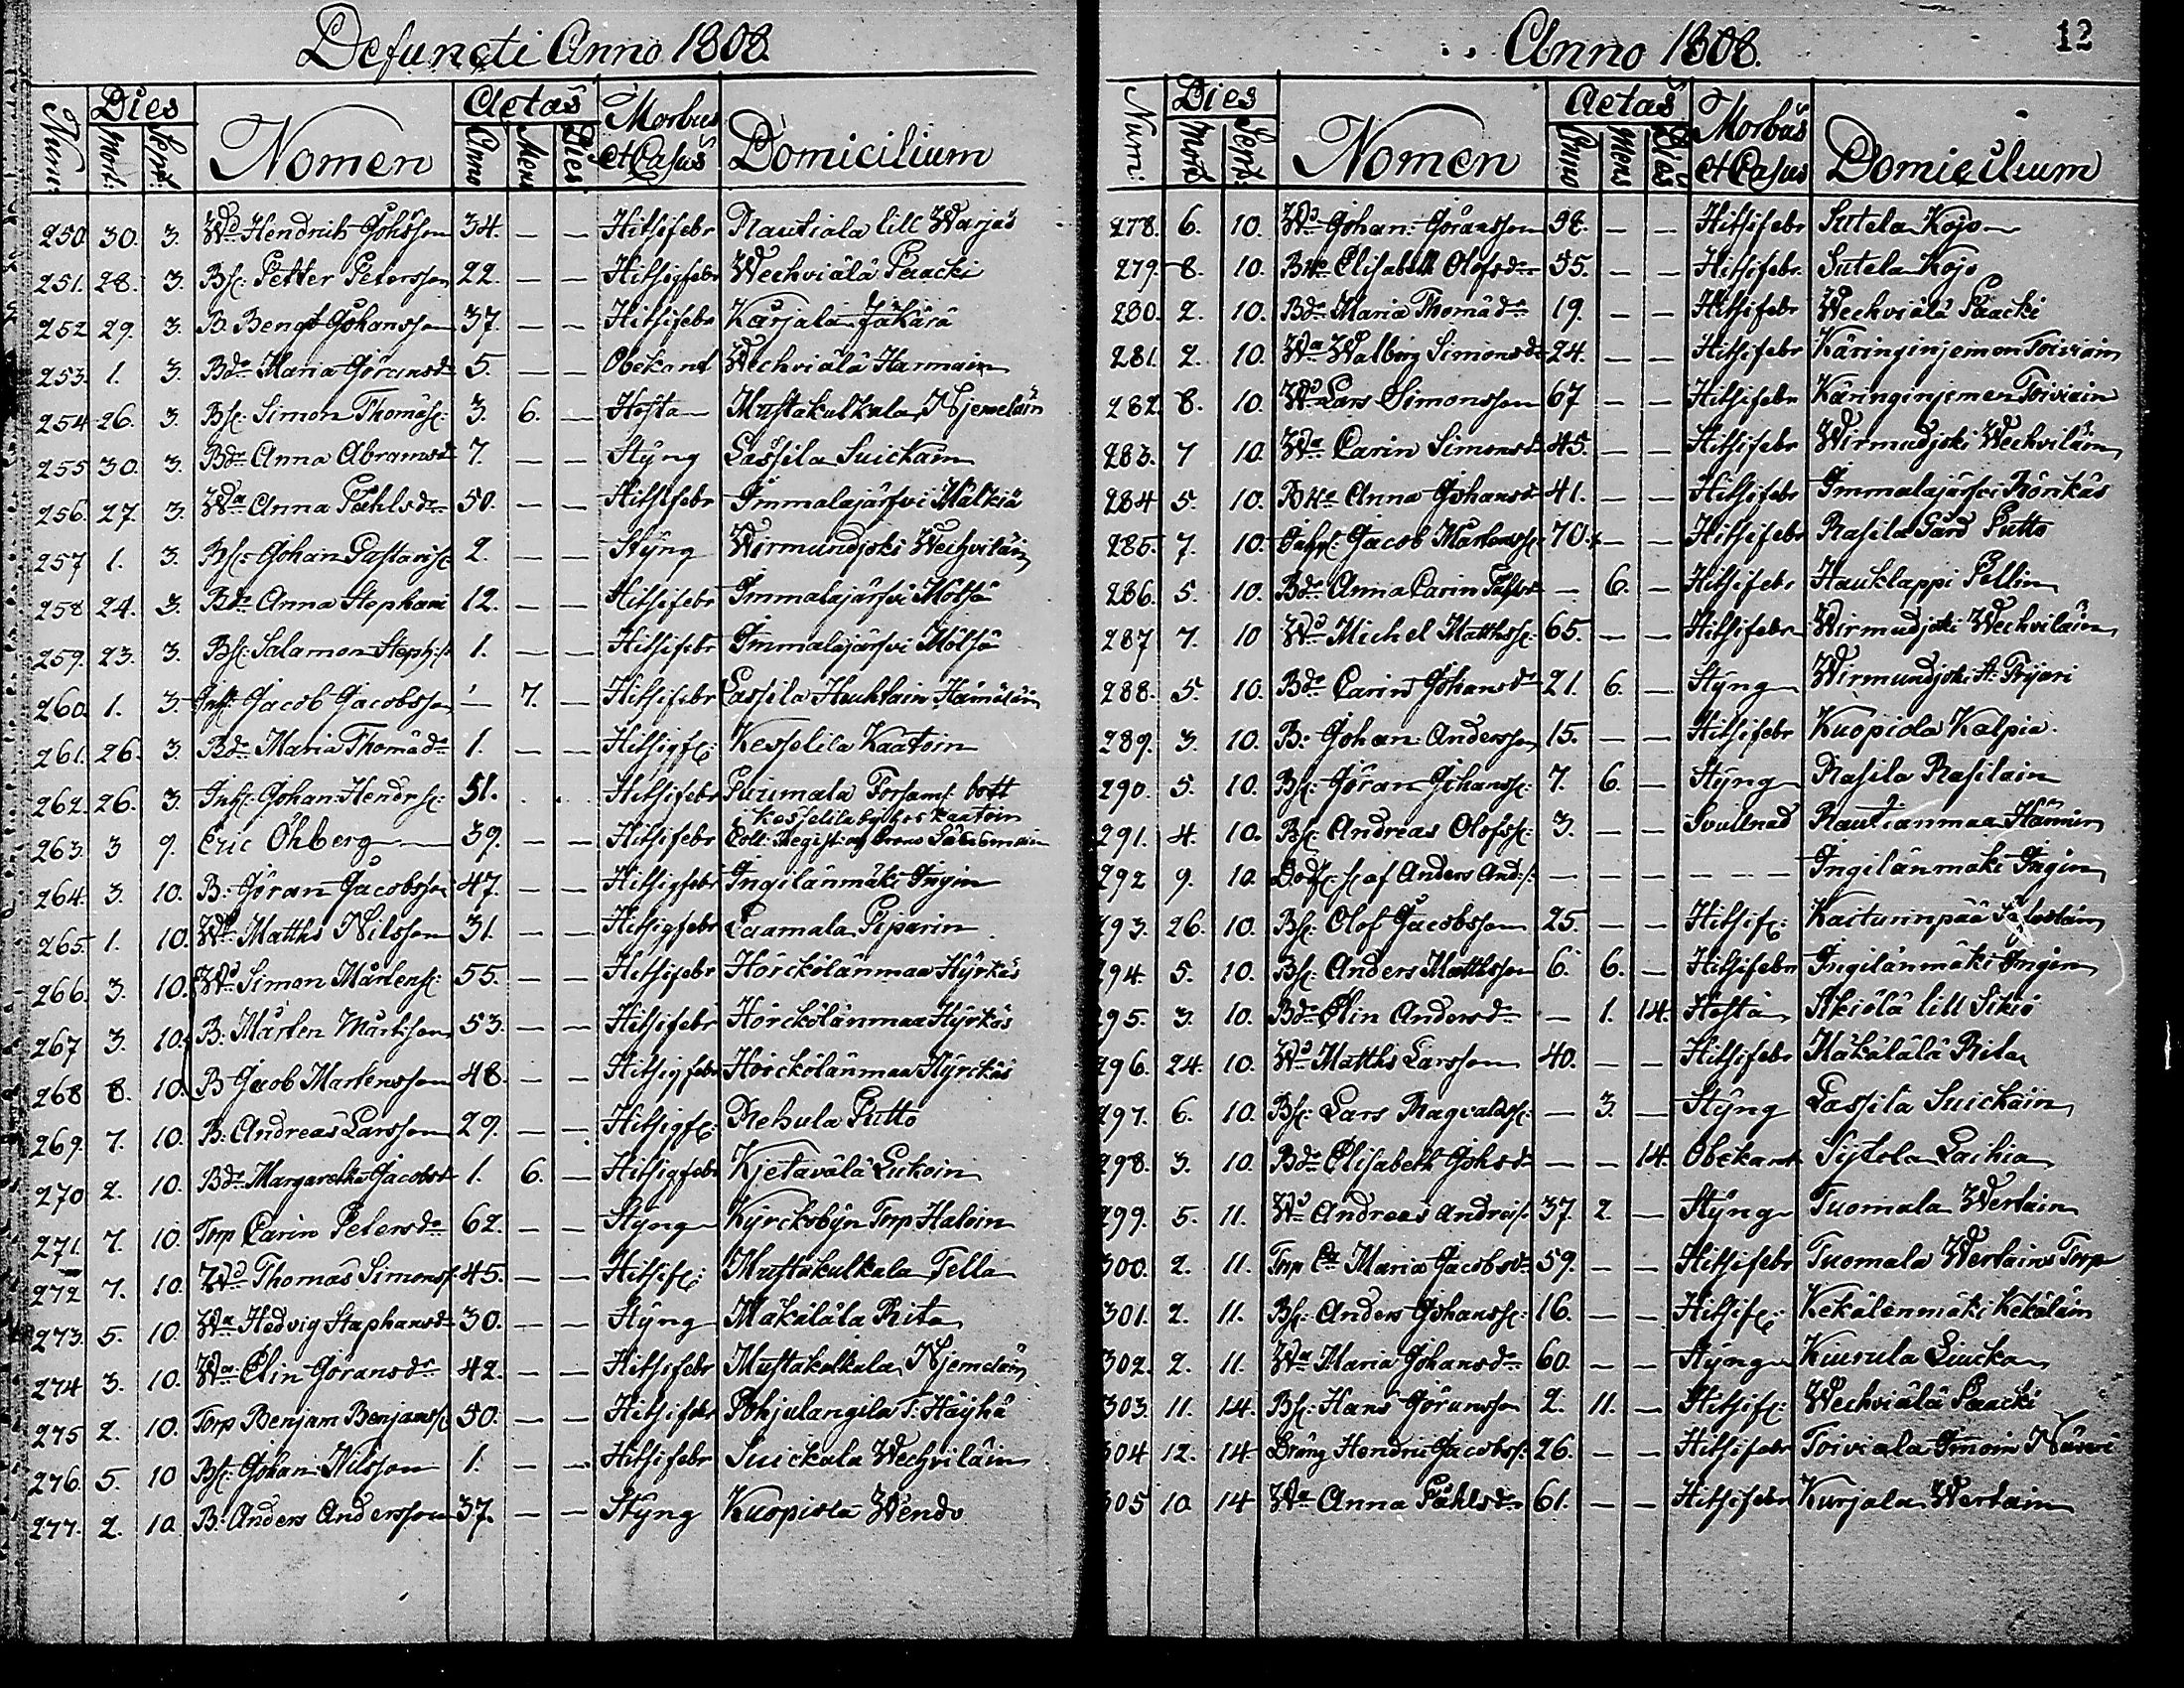 Defuncti Anno 1808.
Num: Dies Mort: Sept: Nomen Aetas Anno Mens Dies Morbus et Casus Domicilium
250. 30. 3. Wd Hendrik Johsson 34. — — Hitsifebr Rautiala lill Warjus
251. 28. 3. Bs: Petter Petersson 22. — — Hitsigfebr Wechviälä Paacki
252 29. 3. B. Bengt Johansson 37. — — Hitsifebr Karjala Jäkärä
253. 1. 3. Bdr Maria Göransdr 5. — — Obekant Wechviälä Harmain
254 26. 3. Bs: Simon Thomäs: 3. 6. — Hosta Mustakulkala Njemeläin
255 30. 3. Bdr Anna Abramsdr 7. — — Styng Lassila Suickain
256. 27. 3. Wa Anna Påhlsdr 50. — — Hitsifebr Immalajärfvi Mälkiä
257 1. 3. Bs: Johan Gustavis: 2. — — Styng Wirmundjoki Wechviläin
258 24. 3. Bdr Anna Stephani 12. — — Hitsifebr Immalajärfvi Möltsä
259. 23. 3. Bs: Salamon Stephs: 1. — — Hitsifebr Immalajärfvi Möltsä
260. 1. 3. Inhs: Jacob Jacobsson — 7. — Hitsifebr Lassila Hauklain Hämäläin
261. 26. 3. Bdr Maria Thomädr 1. — — Hitsigf: Kesselila Kaatoin
262. 26. 3. Inhs: Johan Hendrs: 51. . . Hitsifebr Puumala Forsaml: bott
i Kesselila by hos Kaatoin
263. 3 9. Eric Öhberg 39. — — Hitsifebr Coll: Regist: og
264. 3. 10. B: Göran Jacobsson 47. — — Hitsigfebr Ingilänmäki Ingin
265. 1. 10. Wd Matths Nilsson 31. — — Hitsigfebr Laamala Piparin
266. 3. 10. Wd Simon Mårtens: 55. — — Hitsifebr Hörckölänmaa Hyrkäs
267 3. 10. B: Mårten Mårtisson 53. — — Hitsifebr Hörckölänmaa Hyrkäs
268 8. 10. B Jacob Martensson 48. — — Hitsigfebr Hörckölänmaa Hyrckäs
269. 7. 10. B: Andreas Larsson 29. — — Hitsigf: Rehula Putto
270 2. 10. Bdr Margaretha Jacobsdr 1. 6. — Hitsigfebr Kjetavälä Lukoin
271. 7. 10. Torp Carin Petersdr 62. — — Styng Kyrckobyn Torp Haloin
272 7. 10. Wd Thomas Simonss: 45. — — Hitsif: Mustakulkala Tella
273. 5. 10. Wa Hedvig Staphansdr 30. — — Styng Mäkälälä Rita
274 3. 10. Wa Elin Göransdr 42. — — Hitsifebr Mustakulkala Njemeläin
275 2. 10. Torp Benjam Benjams: 50. — — Hitsifebr Pohjalangila T: Häyhä
276. 5. 10 Bs: Johan Nilsson 1. — — Hitsifebr Suickala Wechviläin
277. 2. 10. B: Anders Andersson 37. — — Styng Kuopiola Wendo
Anno 1808. 12
Num: Dies Mort Sept: Nomen Aetas Anno Mens Dies Morbus et Casus Domicilium
278. 6. 10. Wd Johan Göransson 58. — — Hitsifebr Sutela Kojo
279. 8. 10. Bka Elisabeth Olofsdr 55. — — Hitsifebr. Sutela Kojo
280. 2. 10. Bdr Maria Thomädr 19. — — Hitsifebr Wechviälä Paacki
281. 2. 10. Wa Walborg Simonsdr 24. — — Hitsifebr Käringinjemen Toiviain
282. 8. 10. Wd Lars Simonsson 67 — — Hitsifebr Käringinjemen Toiviain
283. 7 10. Wa Carin Simonsdr 45. — — Hitsifebr Wirmudjoki Wechviläin
284 5. 10. Bka Anna Johansdr 41. — — Hitsifebr Immalajärfvi Rönkäs
285. 7. 10. Jacob Martenss: 70. — Hitsifebr Rasila Gård Putto
286. 5. 10. Bdr Anna Carin Påhlsdr — 6. — Hitsifebr Hauklappi Pellin
287 7. 10 Wd Michel Matthss: 65. — — Hitsifebr Wirmudjoki Wechviläin
288. 5. 10. Bdr Carin Johansdr 21. 6. — Styng Wirmundjoki A: Pryäri
289. 3. 10. B: Johan Andersson 15. — — Hitsifebr Kuopiola Kalpia.
290. 5. 10. Bs: Göran Johanss: 7. 6. — Styng Rasila Rasilain
291. 4. 10. Bs: Andreas Olofss: 3. — — Svullnad Rautianmaa Hämin
292 9. 10. Dödf: s: af Anders And:s: — — — — — — Ingilänmäki Ingin
293. 26. 10. Bs: Olof Jacobsson 25. — — Hitsif: Kaiturinpää
294. 5. 10. Bs: Anders Matthsson 6. 6. — Hitsifebr Ingilänmäki Ingin
295. 3. 10. Bdr Elin Andersdr — 1. 14. Hosta Sikiölä lill Sikiö
296. 24. 10. Wd Matths Larsson 40. — — Hitsifebr Mäkälälä Rita
297. 6. 10. Bs: Lars Ragvaldss: — 3. — Styng Lassila Suickain
298. 3. 10. Bdr Elisabeth Johsdr — — 14. Obekant Sytola Laihia
299. 5. 11. Wd Andreas Andreis: 37. 2. — Styng Tuomala Wertain
300. 2. 11. Torp Ea Maria Jacobsdr 59. — — Hitsifebr Tuomala Wertains Torp
301. 2. 11. Bs: Anders Johanss: 16. — — Hitsif: Kekälänmäki Kekäläin
302. 2. 11. Wa Maria Johansdr 60. — — Styng Kiurula Liucka
303. 11. 14. Bs: Hans Göransson 2. 11. — Hitsif: Wechviälä Paacki
304 12. 14. Dräng Hendric Jacobss: 26. — — Hitsifebr Toiviala Imoin
305 10 14 Wa Anna Påhlsdr 61. — — Hitsifebr Kurjala Wertain